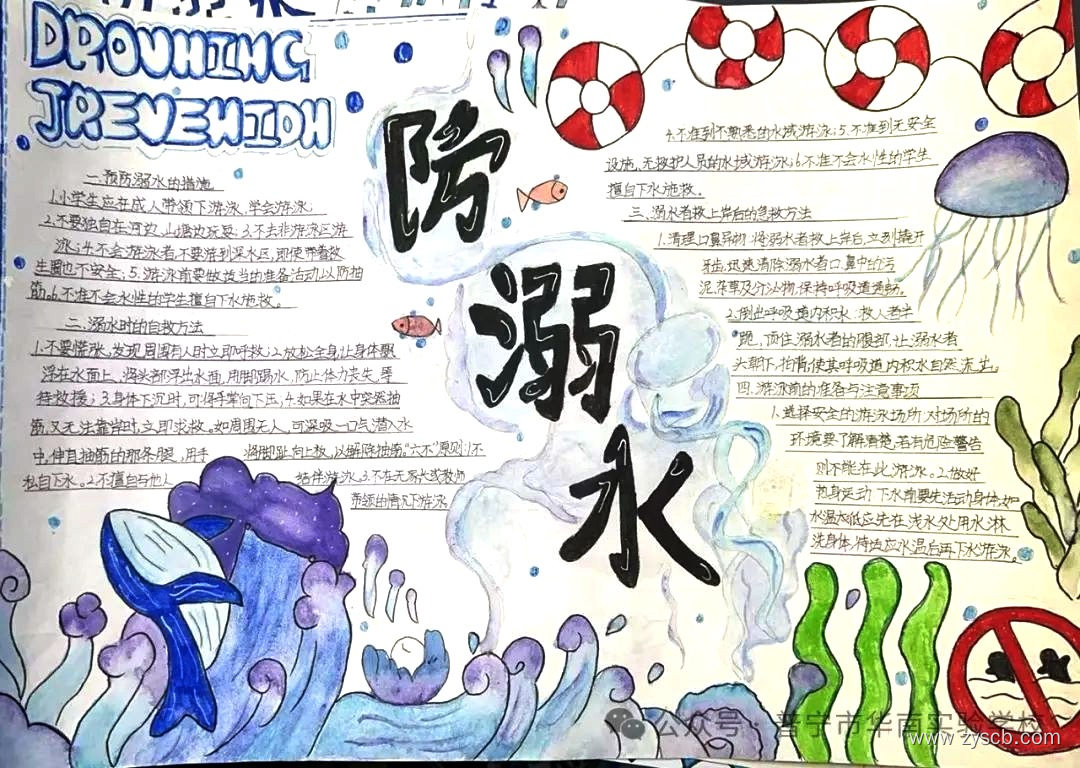 DROWNING
JREVEWIOH
防
溺
水
一.预防溺水的措施
1.小学生应在成人带领下游泳,学会游泳
2.不要独自在河边、山塘边玩耍;3.不去非游泳区游
泳;4.不会游泳者,不要游到深水区,即使带着救
生圈也不安全;5.游泳前要做适当的准备活动,以防抽
筋。6.不准不会水性的学生擅自下水施救。
二.溺水时的自救方法
1.不要慌张,发现周围有人时立即呼救;2.放松全身,让身体飘
浮在水面上,将头部浮出水面,用脚踢水,防止体力丧失,等
待救援;3.身体下沉时,可将手掌向下压;4.如果在水中突然抽
筋,又无法靠岸时,立即求救。如周围无人,可深吸一口气潜入水
中,伸直抽筋的那条腿,用手 将脚趾向上扳,以解除抽筋。"六不"原则:1.不
私自下水。2.不擅自与他人 结伴游泳。3.不在无家长或教师
带领的情况下游泳
4.不准到不熟悉的水域游泳;5.不准到无安全
设施、无救护人员的水域游泳;6.不准不会水性的学生
擅自下水施救.
三、溺水者救上岸后的急救方法
1.清理口鼻异物:将溺水者救上岸后,立刻撬开
牙齿,迅速清除溺水者口、鼻中的污
泥、杂草及分泌物,保持呼吸道通畅.
2.倒出呼吸道内积水:救人者半
跪,顶住溺水者的腹部,让溺水者
头朝下,拍背,使其呼吸道内积水自然流出.
四.游泳前的准备与注意事项
1.选择安全的游泳场所:对场所的
环境要了解清楚,若有危险警告
则不能在此游泳。2.做好
热身运动:下水前要先活动身体,如
水温太低应先在浅水处用水淋
洗身体,待适应水温后再下水游泳。
公众号·普宁市华南实验学校
www.zyscb.com